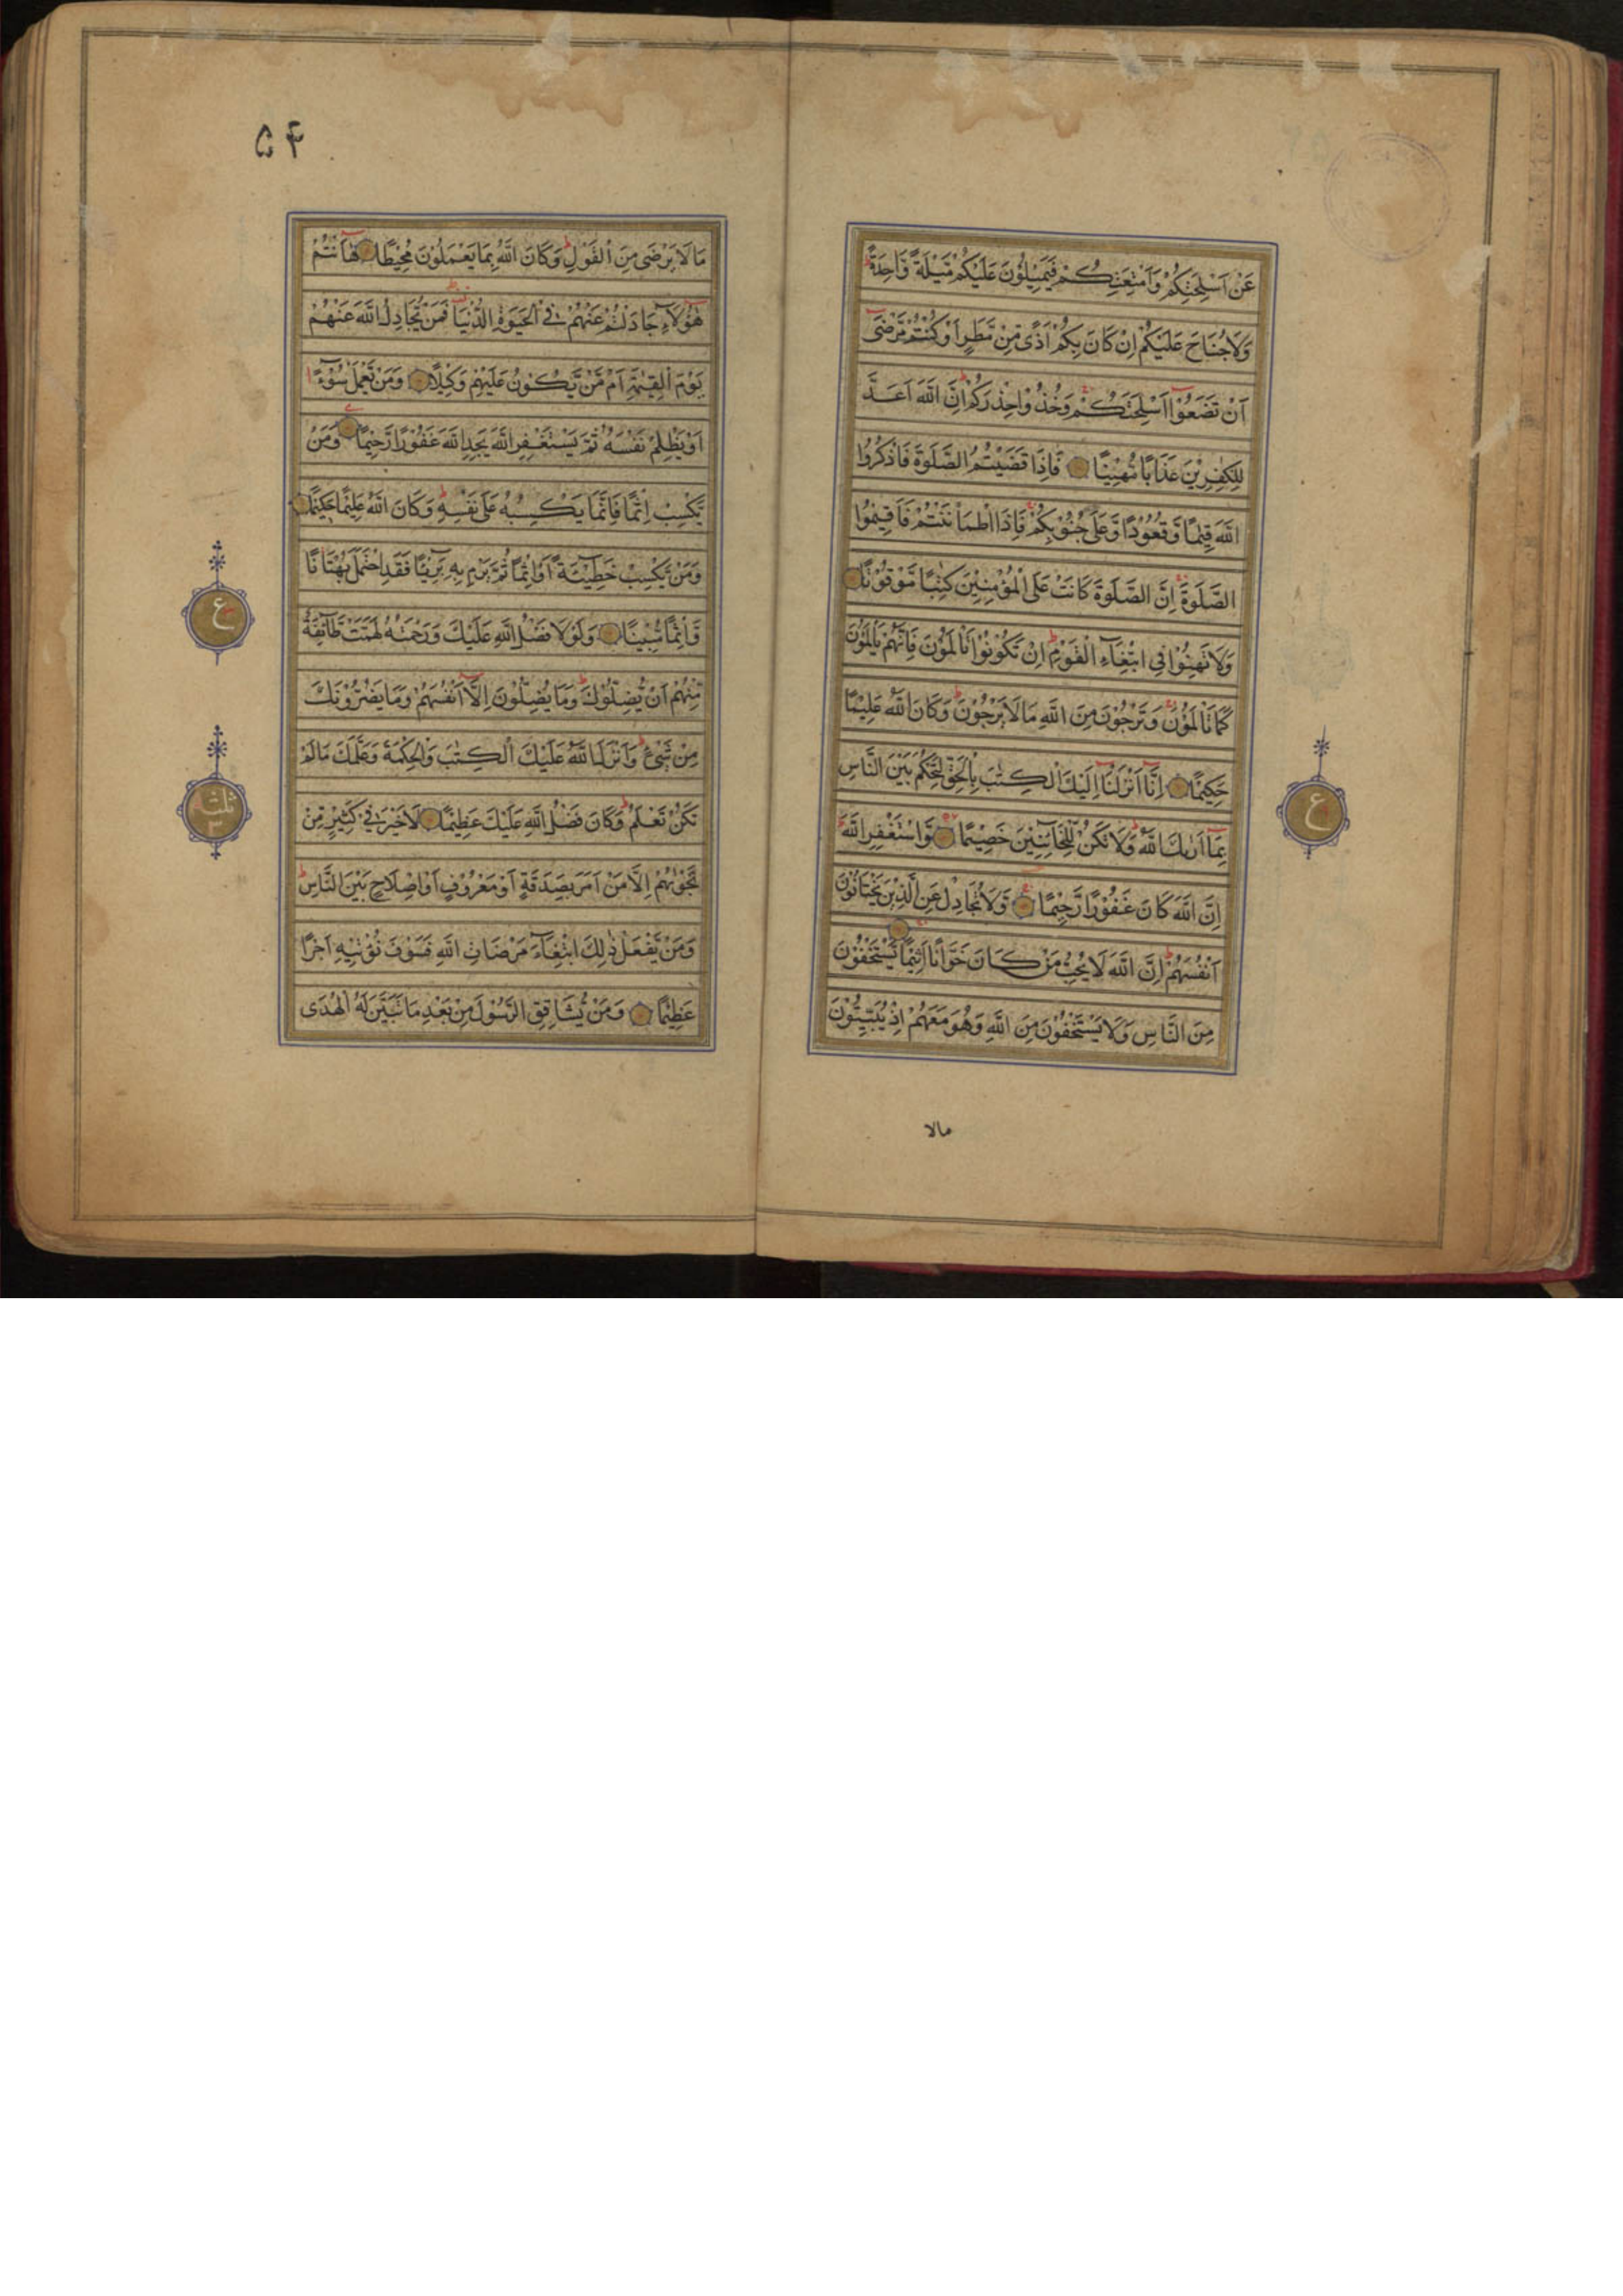 عَنْ اَسْلِحَتِكُمْ وَاَمْتِعَتِكُمْ فَيَمِيْلُوْنَ عَلَيْكُمْ مَّيْلَةً وَّاحِدَةً ط
وَلَاجُنَاحَ عَلَيْكُمْ اِنْ كَانَ بِكُمْ اَذًى مِّنْ مَّطَرٍ اَوْ كُنْتُمْ مَّرْضٰٓى
اَنْ تَضَعُوْٓا اَسْلِحَتَكُمْ وَخُذُوْا حِذْرَكُمْ ط اِنَّ اللّٰهَ اَعَدَّ
لِلْكٰفِرِيْنَ عَذَابًا مُّهِيْنًا فَاِذَا قَضَيْتُمُ الصَّلٰوةَ فَاذْكُرُوا
اللّٰهَ قِيٰمًا وَّقُعُوْدًا وَّعَلٰى جُنُوْبِكُمْ فَاِذَا اطْمَاْنَنْتُمْ فَاَقِيْمُوا
الصَّلٰوةَ اِنَّ الصَّلٰوةَ كَانَتْ عَلَى الْمُؤْمِنِيْنَ كِتٰبًا مَّوْقُوْتًا
وَلَا تَهِنُوْا فِي ابْتِغَآءِ الْقَوْمِ ط اِنْ تَكُوْنُوْا تَاْلَمُوْنَ فَاِنَّهُمْ يَاْلَمُوْنَ
كَمَا تَاْلَمُوْنَ وَتَرْجُوْنَ مِنَ اللّٰهِ مَالَا يَرْجُوْنَ ط وَكَانَ اللّٰهُ عَلِيْمًا
حَكِيْمًا اِنَّآ اَنْزَلْنَآ اِلَيْكَ الْكِتٰبَ بِالْحَقِّ لِتَحْكُمَ بَيْنَ النَّاسِ
بِمَآ اَرٰىكَ اللّٰهُ ط وَلَا تَكُنْ لِّلْخَآئِنِيْنَ خَصِيْمًا وَّاسْتَغْفِرِ اللّٰهَ ط
اِنَّ اللّٰهَ كَانَ غَفُوْرًا رَّحِيْمًا وَلَا تُجَادِلْ عَنِ الَّذِيْنَ يَخْتَانُوْنَ
اَنْفُسَهُمْ ط اِنَّ اللّٰهَ لَا يُحِبُّ مَنْ كَانَ خَوَّانًا اَثِيْمًا يَّسْتَخْفُوْنَ
مِنَ النَّاسِ وَلَا يَسْتَخْفُوْنَ مِنَ اللّٰهِ وَهُوَ مَعَهُمْ اِذْ يُبَيِّتُوْنَ
مالا
ع
۵۴
مَا لَا يَرْضٰى مِنَ الْقَوْلِ ط وَكَانَ اللّٰهُ بِمَا يَعْمَلُوْنَ مُحِيْطًا هٰٓاَنْتُمْ
هٰٓؤُلَآءِ جَادَلْتُمْ عَنْهُمْ فِي الْحَيٰوةِ الدُّنْيَا فَمَنْ يُّجَادِلُ اللّٰهَ عَنْهُمْ
يَوْمَ الْقِيٰمَةِ اَمْ مَّنْ يَّكُوْنُ عَلَيْهِمْ وَكِيْلًا وَمَنْ يَّعْمَلْ سُوْٓءًا
اَوْ يَظْلِمْ نَفْسَهٗ ثُمَّ يَسْتَغْفِرِ اللّٰهَ يَجِدِ اللّٰهَ غَفُوْرًا رَّحِيْمًا وَمَنْ
يَّكْسِبْ اِثْمًا فَاِنَّمَا يَكْسِبُهٗ عَلٰى نَفْسِهٖ ط وَكَانَ اللّٰهُ عَلِيْمًا حَكِيْمًا
وَمَنْ يَّكْسِبْ خَطِيْٓئَةً اَوْ اِثْمًا ثُمَّ يَرْمِ بِهٖ بَرِيْٓئًا فَقَدِ احْتَمَلَ بُهْتَانًا
وَّاِثْمًا مُّبِيْنًا وَلَوْ لَا فَضْلُ اللّٰهِ عَلَيْكَ وَرَحْمَتُهٗ لَهَمَّتْ طَّآئِفَةٌ
مِّنْهُمْ اَنْ يُّضِلُّوْكَ ط وَمَا يُضِلُّوْنَ اِلَّآ اَنْفُسَهُمْ وَمَا يَضُرُّوْنَكَ
مِنْ شَيْءٍ ط وَاَنْزَلَ اللّٰهُ عَلَيْكَ الْكِتٰبَ وَالْحِكْمَةَ وَعَلَّمَكَ مَا لَمْ
تَكُنْ تَعْلَمُ ط وَكَانَ فَضْلُ اللّٰهِ عَلَيْكَ عَظِيْمًا لَا خَيْرَ فِيْ كَثِيْرٍ مِّنْ
نَّجْوٰىهُمْ اِلَّا مَنْ اَمَرَ بِصَدَقَةٍ اَوْ مَعْرُوْفٍ اَوْ اِصْلَاحٍ بَيْنَ النَّاسِ ط
وَمَنْ يَّفْعَلْ ذٰلِكَ ابْتِغَآءَ مَرْضَاتِ اللّٰهِ فَسَوْفَ نُؤْتِيْهِ اَجْرًا
عَظِيْمًا وَمَنْ يُّشَاقِقِ الرَّسُوْلَ مِنْ بَعْدِ مَا تَبَيَّنَ لَهُ الْهُدٰى
ع
ثلثة
٣